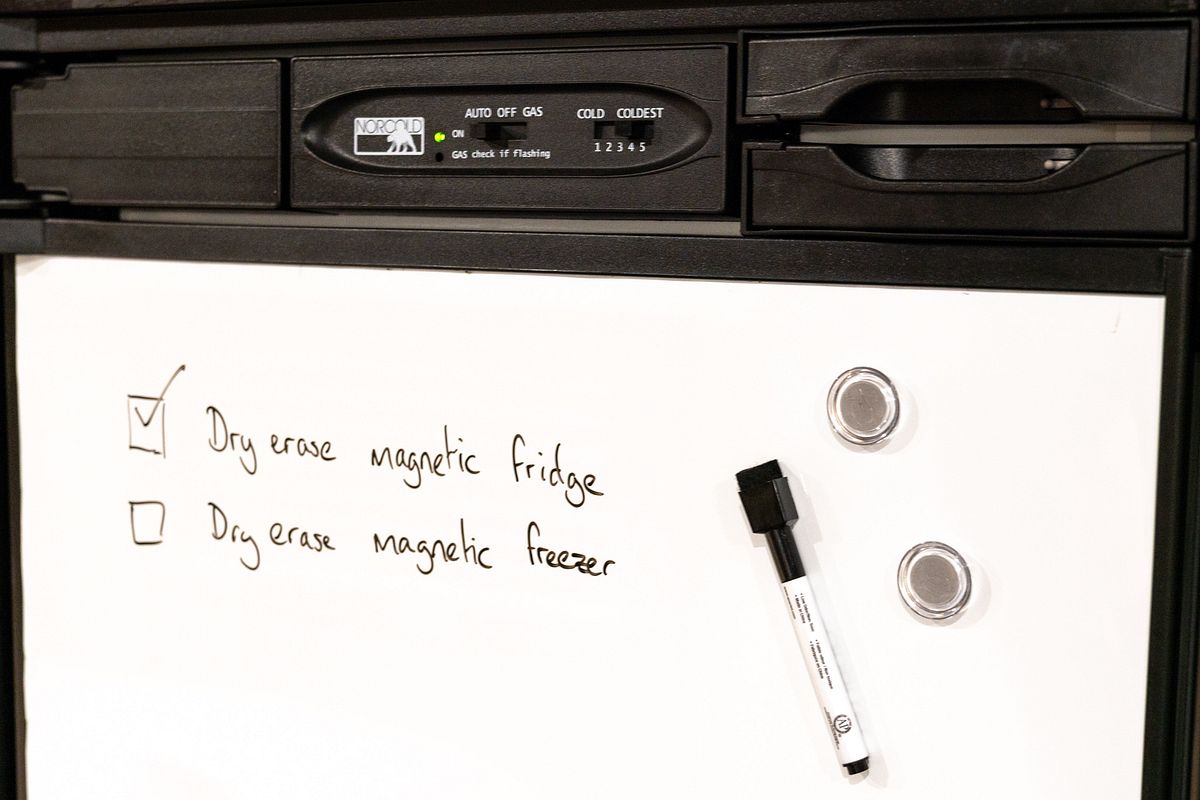 NORCOLD
AUTO OFF GAS
COLD COLDEST
ON
1 2 3 4 5
GAS check if flashing
Dry erase magnetic fridge
Dry erase magnetic freezer